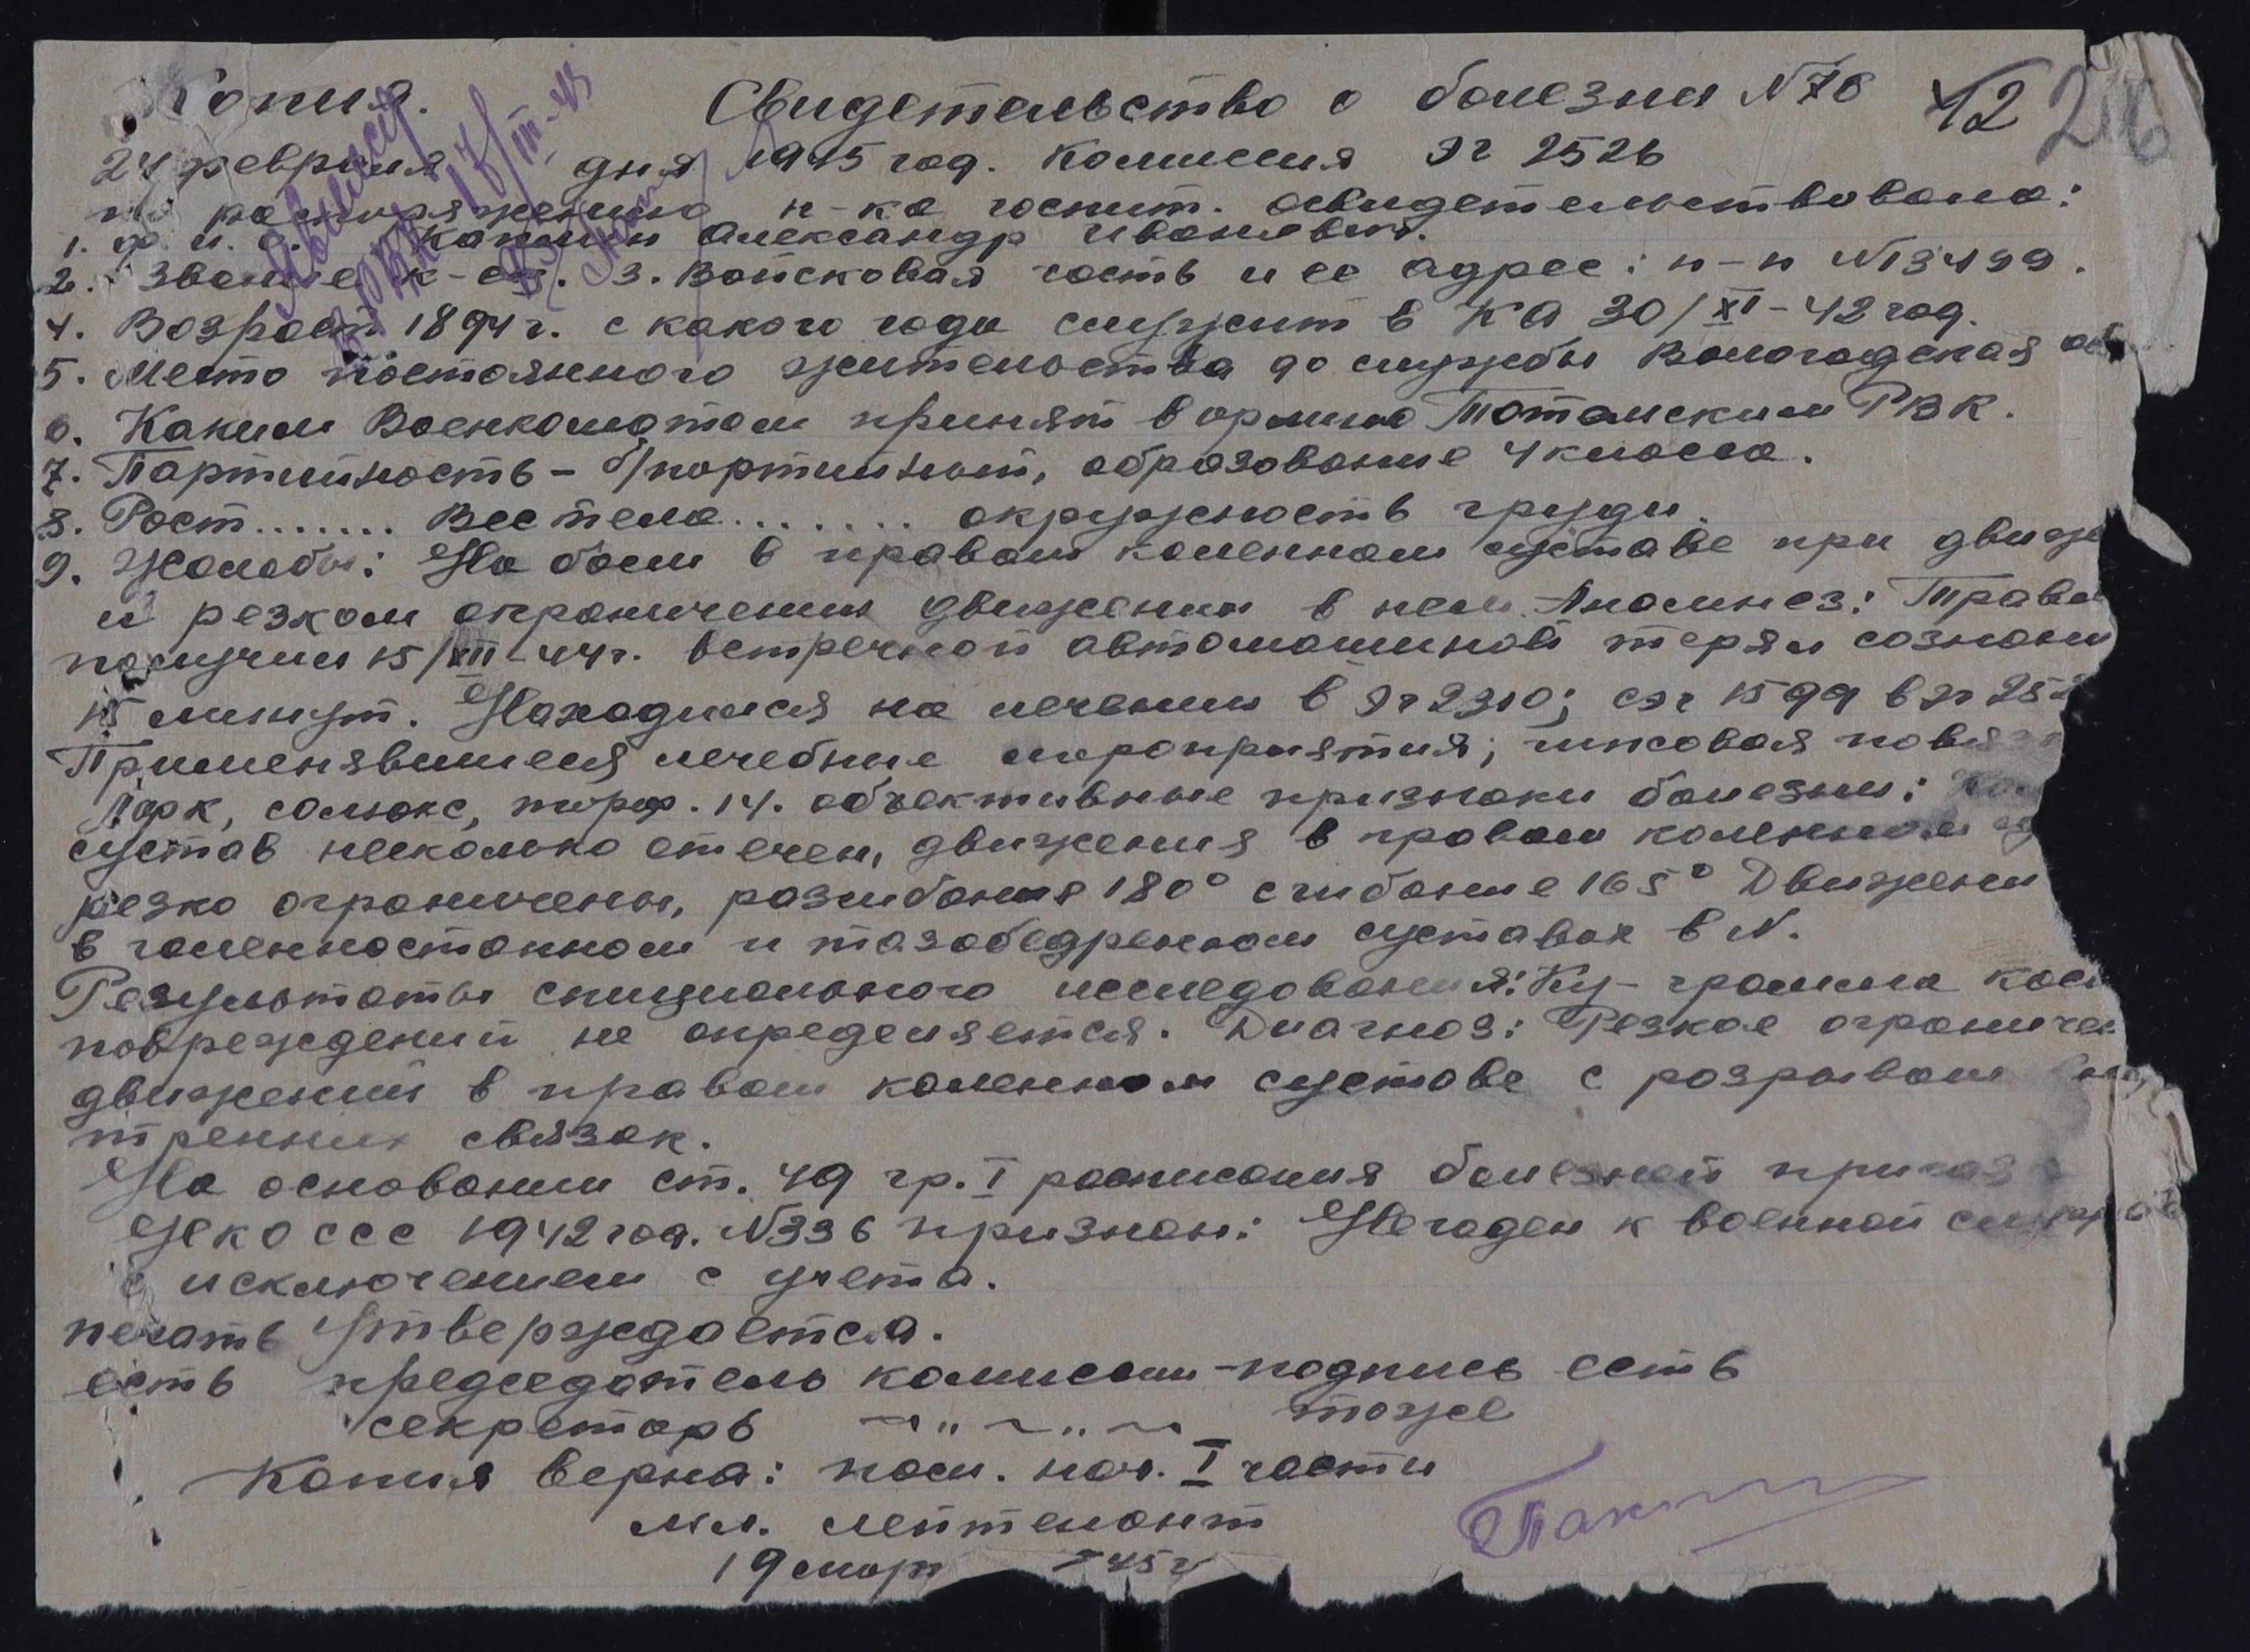 Копия. Свидетельство о болезни N 78 12
24 февраля дня 1945 год. Комиссия ЭГ 2526
по распоряжению н-ка госпит. освидетельствована:
1. ф. и. о. Александр Иванович.
2. Звание к-ец. 3. Войсковая часть и ее адрес: п-п N 13499.
4. Возраст 1894 г. с какого года служит в КА 30/XI-42 год.
5. Место постоянного жительства до службы Вологодская об
6. Каким Военкоматом принят в армию Тотемским РВК.
7. Партийность - б/партийный, образование 4 класса.
8. Рост....... Вес тела....... окружность груди.
9. Жалобы: На боли в правом коленном суставе при движе
и резком ограничении движении в нем. Анамнез: Травм
получил 15/XII-44 г. встречной автомашиной терял сознани
15 минут. Находился на лечении в ЭГ 2310; сэг 1599 в ЭГ 252
Применявшиеся лечебные мероприятия; гипсовая повяз
Парк, солюкс, торф. 14. объективные признаки болезни:
сустав несколько отечен, движения в правом коленном
резко ограничены, разгибания 180° сгибание 165° Движени
в голенностопном и тазобедренном суставах в N.
Результаты специального исследования: Ку-грамма кос
повреждений не определяется. Диагноз: Резкое ограничен
движений в правом коленном суставе с разрывом
тренних связок.
На основании ст. 49 гр. I расписания болезней приказ
НКО ССС 1942 год. N 336 признан: Негоден к военной службе
с исключением с учета.
печать Утверждается.
есть председатель комиссии - подпись есть
секретарь ~ " ~ " ~ тоже
Копия верна: пом. нач. I части
мл. лейтенант
19 март 45 г